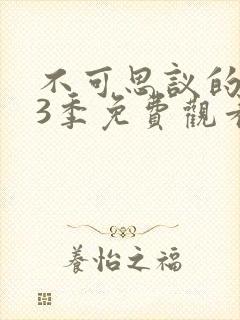 不可思議的
3季免費觀看
養怡之福